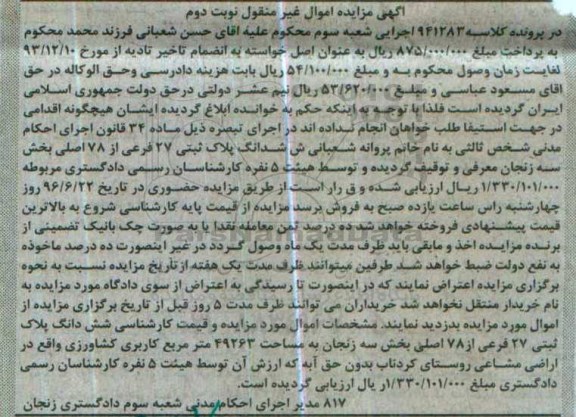 آگهی مزایده اموال غیر منقول نوبت دوم
در پرونده کلاسه ۹۴۱۲۸۳ اجرایی شعبه سوم محکوم علیه آقای حسن شعبانی فرزند محمد محکوم
به پرداخت مبلغ ۸۷۵/۰۰۰/۰۰۰ ریال به عنوان اصل خواسته به انضمام تاخیر تادیه از مورخ ۹۳/۱۲/۱۰
لغایت زمان وصول محکوم به و مبلغ ۵۴/۱۰۰/۰۰۰ ریال بابت هزینه دادرسی وحق الوکاله در حق
آقای مسعود عباسی و مبلغ ۵۳/۶۲۰/۰۰۰ ریال نیم عشر دولتی درحق دولت جمهوری اسلامی
ایران گردیده است فلذا با توجه به اینکه حکم به خوانده ابلاغ گردیده ایشان هیچگونه اقدامی
در جهت استیفا طلب خواهان انجام نداده اند در اجرای تبصره ذیل ماده ۳۴ قانون اجرای احکام
مدنی شخص ثالثی به نام خانم پروانه شعبانی ش شدانگ پلاک ثبتی ۲۷ فرعی از ۷۸ اصلی بخش
سه زنجان معرفی و توقیف گردیده و توسط هیئت ۵ نفره کارشناسان رسمی دادگستری مربوطه
۱/۳۳۰/۱۰۱/۰۰۰ ریال ارزیابی شده و ق رار است از طریق مزایده حضوری در تاریخ ۹۶/۶/۲۲ روز
چهارشنبه راس ساعت یازده صبح به فروش برسد مزایده از قیمت پایه کارشناسی شروع به بالاترین
قیمت پیشنهادی فروخته خواهد شد ده درصد ثمن معامله نقدا یا به صورت چک بانیک تضمینی از
برنده مزایده اخذ و مابقی باید ظرف مدت یک ماه وصول گردد در غیر اینصورت ده درصد ماخوذه
به نفع دولت ضبط خواهد شد طرفین میتوانند ظرف مدت یک هفته از تاریخ مزایده نسبت به نحوه
برگزاری مزایده اعتراض نمایند که در اینصورت تا رسیدگی به اعتراض از سوی دادگاه مورد مزایده به
نام خریدار منتقل نخواهد شد خریداران می توانند ظرف مدت ۵ روز قبل از تاریخ برگزاری مزایده از
اموال مورد مزایده بدزدید نمایند. مشخصات اموال مورد مزایده و قیمت کارشناسی شش دانگ پلاک
ثبتی ۲۷ فرعی از ۷۸ اصلی بخش سه زنجان به مساحت ۴۹۲۶۳ متر مربع کاربری کشاورزی واقع در
اراضی مشاعی روستای کردناب بدون حق آبه که ارزش آن توسط هیئت ۵ نفره کارشناسان رسمی
دادگستری مبلغ ۱/۳۳۰/۱۰۱/۰۰۰ر یال ارزیابی گردیده است.
۸۱۷ مدیر اجرای احکام مدنی شعبه سوم دادگستری زنجان